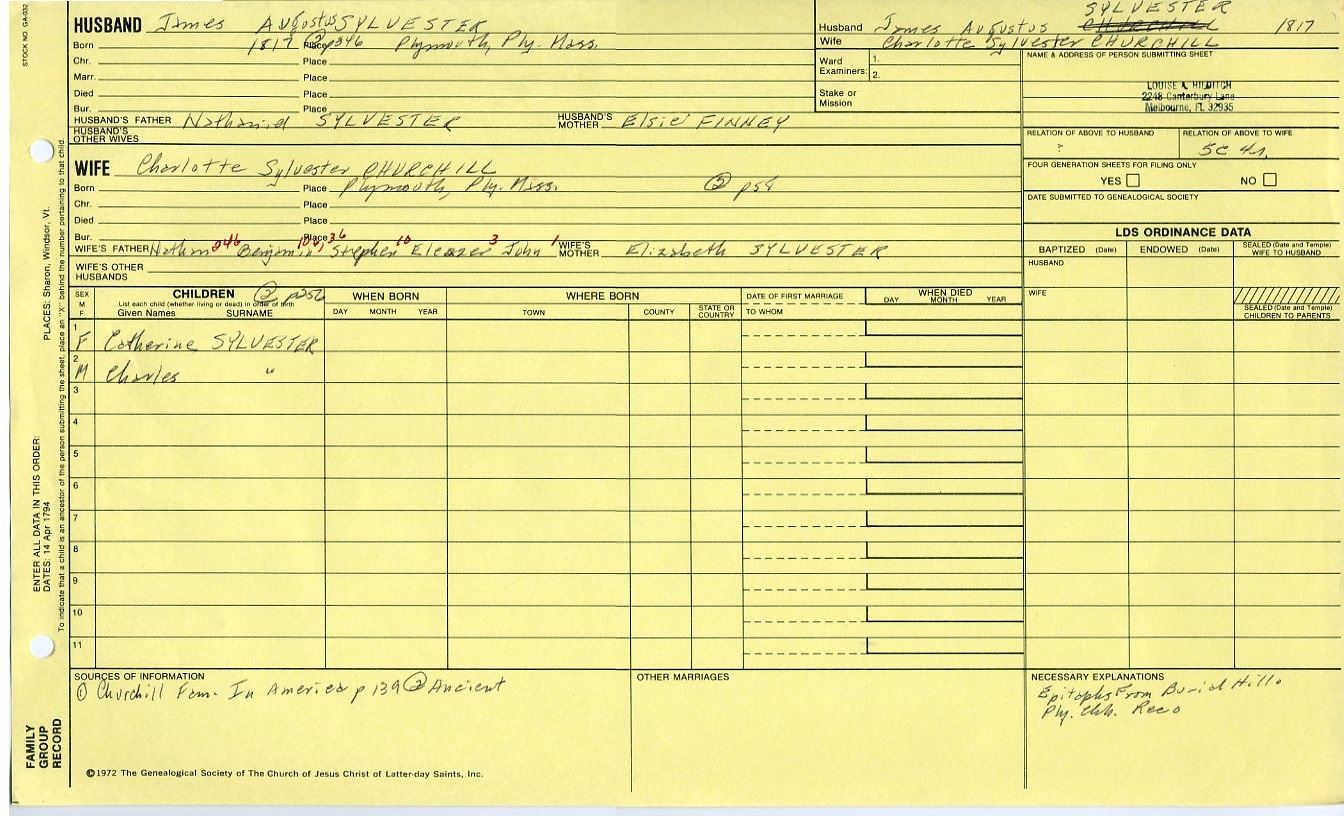 STOCK NO GA-032
HUSBAND James Augustus SYLVESTER
Born 1817 Place ② p346 Plymouth, Ply. Mass.
Chr. Place
Marr. Place
Died Place
Bur. Place
HUSBAND'S FATHER Nathaniel SYLVESTER HUSBAND'S MOTHER Elsie FINNEY
HUSBAND'S OTHER WIVES
SYLVESTER
Husband James Augustus CHURCHILL 1817
Wife Charlotte Sylvester CHURCHILL
Ward Examiners: 1.
2.
Stake or Mission
NAME & ADDRESS OF PERSON SUBMITTING SHEET
LOUISE HILDITCH
2248 Canterbury Lane
Melbourne, FL 32935
RELATION OF ABOVE TO HUSBAND RELATION OF ABOVE TO WIFE
? 5c 4r.
FOUR GENERATION SHEETS FOR FILING ONLY
YES NO
DATE SUBMITTED TO GENEALOGICAL SOCIETY
WIFE Charlotte Sylvester CHURCHILL
Born Place Plymouth, Ply. Mass. ② p59
Chr. Place
Died Place
Bur. Place
WIFE'S FATHER Nathan 246 Benjamin 104 Stephen 36 Eleazer 10 John 3 1 WIFE'S MOTHER Elizabeth SYLVESTER
WIFE'S OTHER HUSBANDS
LDS ORDINANCE DATA
BAPTIZED (Date) ENDOWED (Date) SEALED (Date and Temple) WIFE TO HUSBAND
HUSBAND
WIFE
SEALED (Date and Temple) CHILDREN TO PARENTS
SEX M F CHILDREN ② p256
List each child (whether living or dead) in order of birth
Given Names SURNAME
WHEN BORN DAY MONTH YEAR
WHERE BORN TOWN COUNTY STATE OR COUNTRY
DATE OF FIRST MARRIAGE
TO WHOM
WHEN DIED DAY MONTH YEAR
1 F Catherine SYLVESTER
2 M Charles "
3
4
5
6
7
8
9
10
11
SOURCES OF INFORMATION
① Churchill Fam. In America p 139 ② Ancient
OTHER MARRIAGES
NECESSARY EXPLANATIONS
Epitaphs From Burial Hill
Ply. Chh. Recs
©1972 The Genealogical Society of The Church of Jesus Christ of Latter-day Saints, Inc.
FAMILY GROUP RECORD
ENTER ALL DATA IN THIS ORDER:
DATES: 14 Apr 1794
PLACES: Sharon, Windsor, Vt.
To indicate that a child is an ancestor of the person submitting the sheet, place an "X" behind the number pertaining to that child.